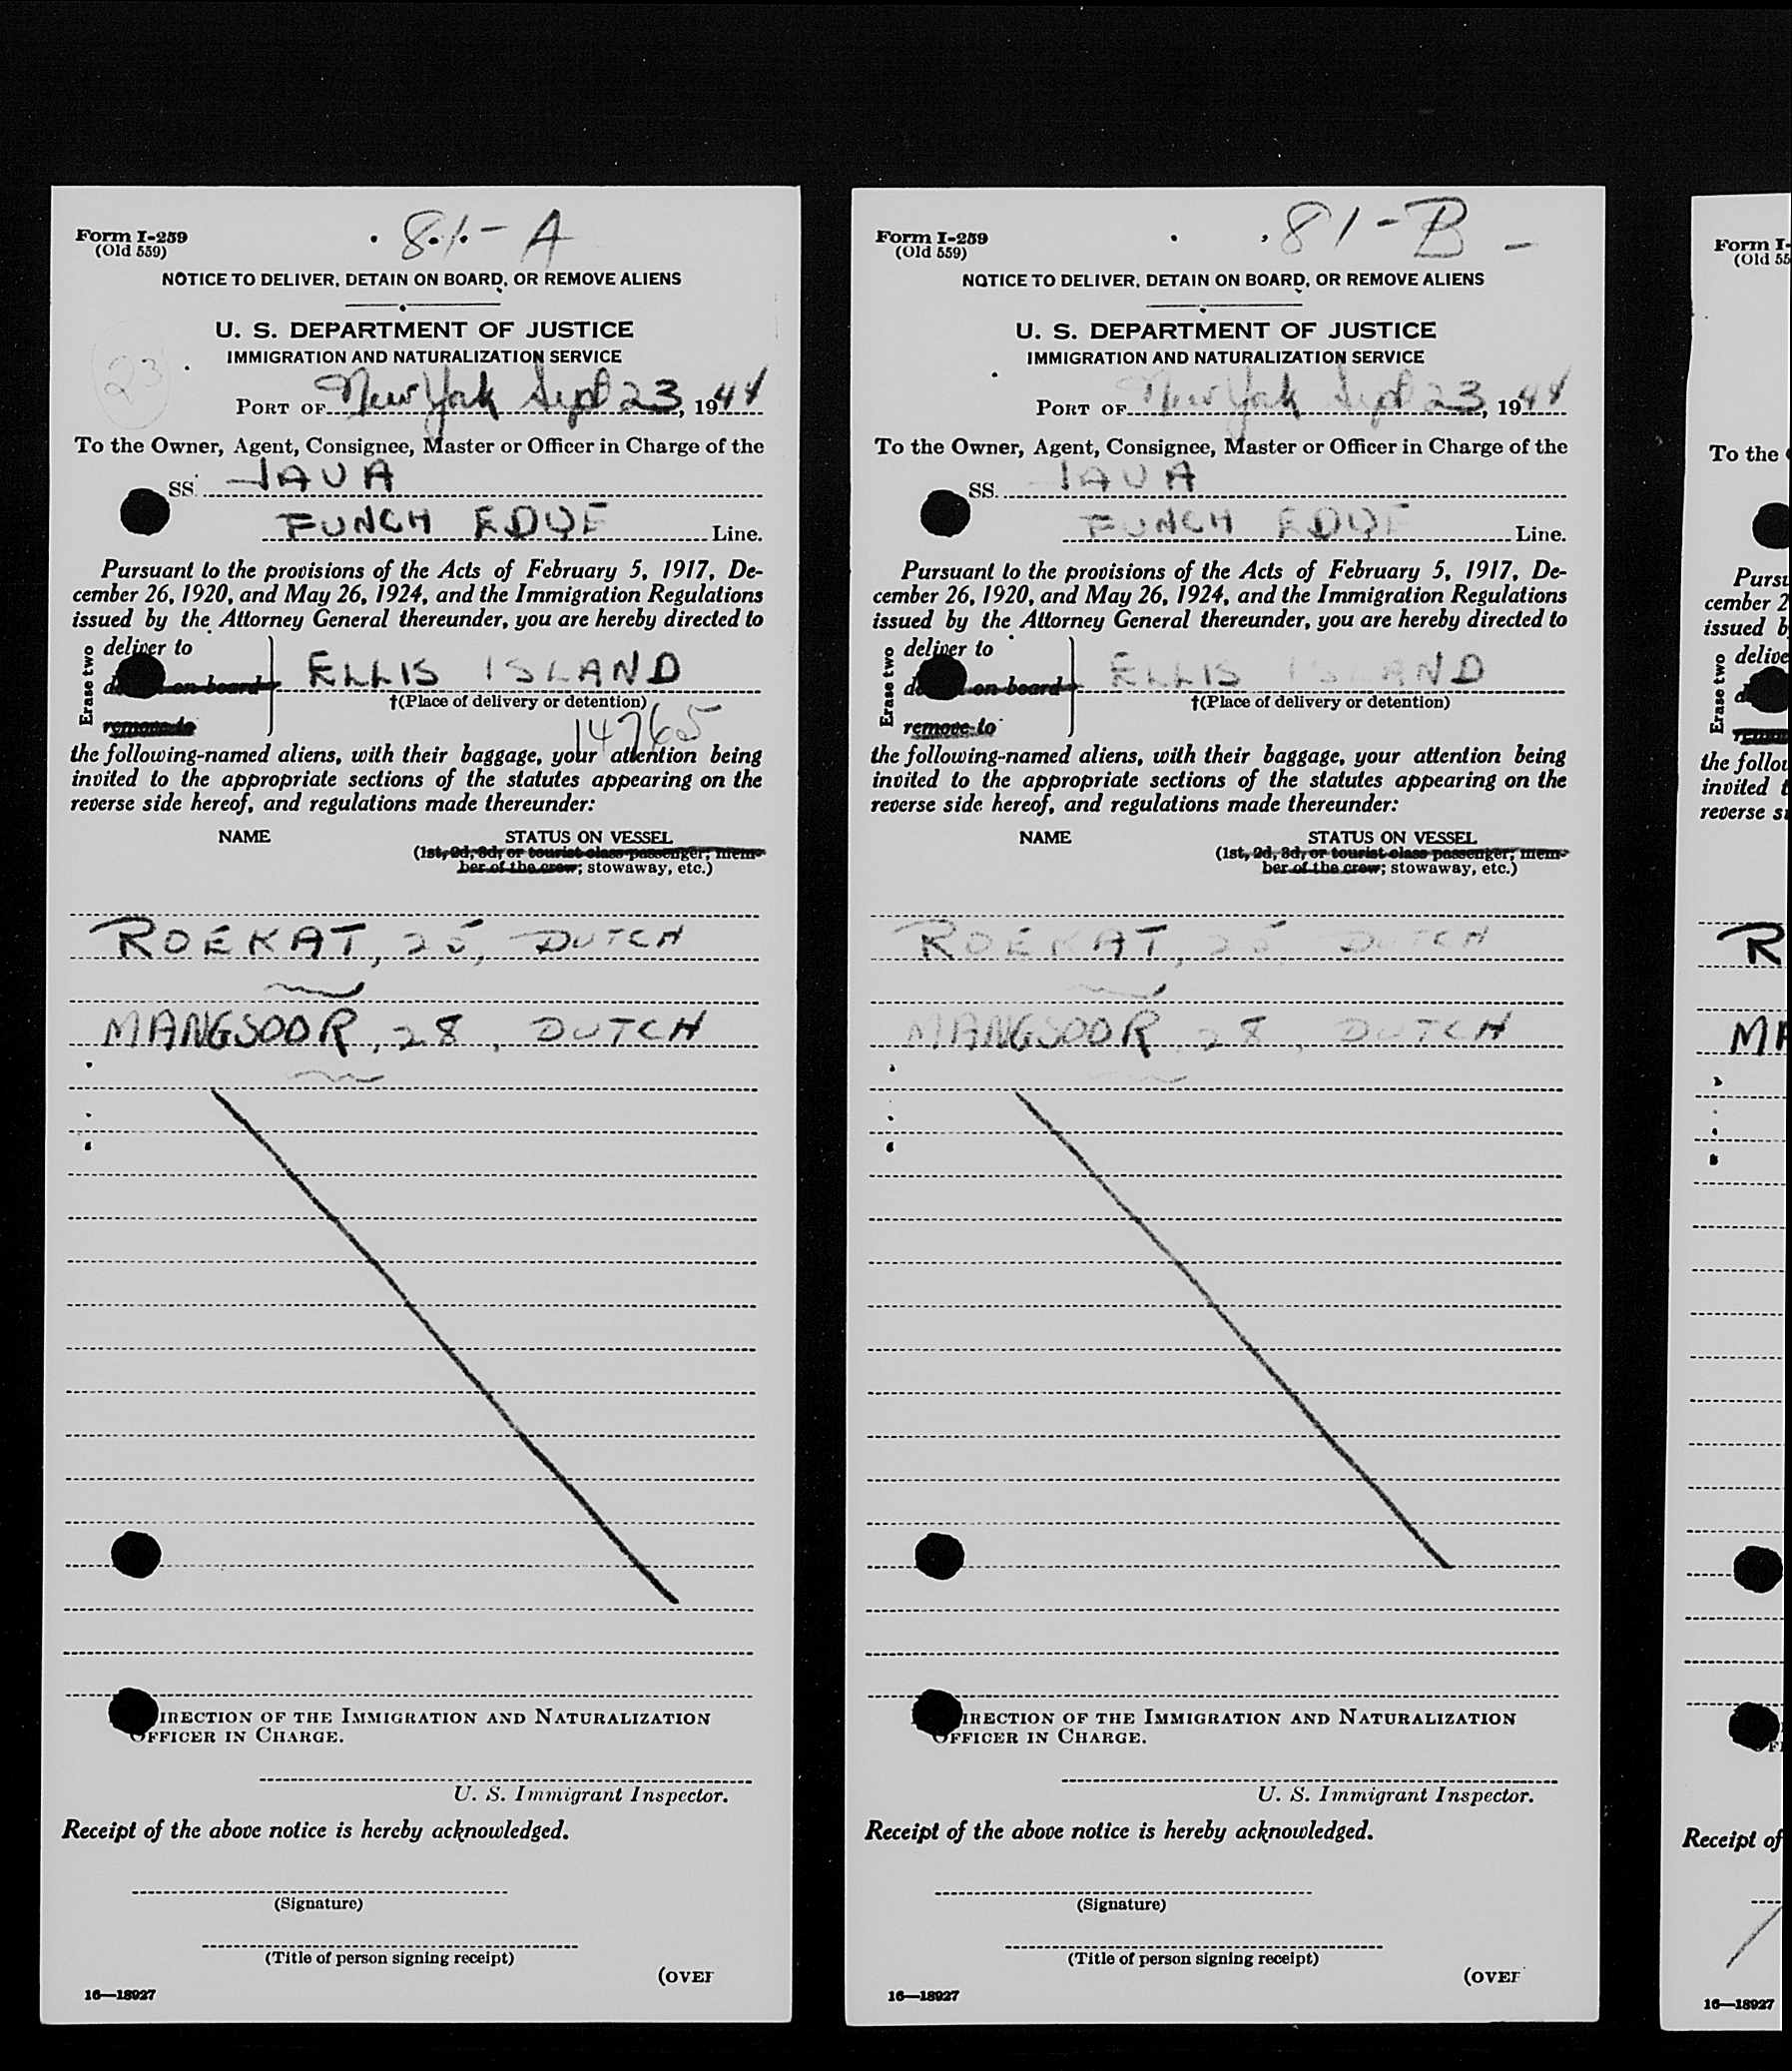 Form I-259
(Old 559)
81-A
NOTICE TO DELIVER, DETAIN ON BOARD, OR REMOVE ALIENS
U. S. DEPARTMENT OF JUSTICE
IMMIGRATION AND NATURALIZATION SERVICE
23
PORT OF New York Sept 23, 1944
To the Owner, Agent, Consignee, Master or Officer in Charge of the
SS. JAVA
FUNCH EDYE Line.
Pursuant to the provisions of the Acts of February 5, 1917, De-
cember 26, 1920, and May 26, 1924, and the Immigration Regulations
issued by the Attorney General thereunder, you are hereby directed to
Erase two
deliver to
on board
remove to
ELLIS ISLAND
†(Place of delivery or detention)
14765
the following-named aliens, with their baggage, your attention being
invited to the appropriate sections of the statutes appearing on the
reverse side hereof, and regulations made thereunder:
NAME STATUS ON VESSEL
(1st, 2d, 3d, or tourist class passenger; mem-
ber of the crew; stowaway, etc.)
ROEKAT, 25, DUTCH
MANGSOOR, 28, DUTCH
IRECTION OF THE IMMIGRATION AND NATURALIZATION
OFFICER IN CHARGE.
U. S. Immigrant Inspector.
Receipt of the above notice is hereby acknowledged.
(Signature)
(Title of person signing receipt)
(OVER
16—18927
Form I-259
(Old 559)
81-B -
NOTICE TO DELIVER, DETAIN ON BOARD, OR REMOVE ALIENS
U. S. DEPARTMENT OF JUSTICE
IMMIGRATION AND NATURALIZATION SERVICE
PORT OF New York Sept 23, 1944
To the Owner, Agent, Consignee, Master or Officer in Charge of the
SS. JAVA
FUNCH EDYE Line.
Pursuant to the provisions of the Acts of February 5, 1917, De-
cember 26, 1920, and May 26, 1924, and the Immigration Regulations
issued by the Attorney General thereunder, you are hereby directed to
Erase two
deliver to
on board
remove to
ELLIS ISLAND
†(Place of delivery or detention)
the following-named aliens, with their baggage, your attention being
invited to the appropriate sections of the statutes appearing on the
reverse side hereof, and regulations made thereunder:
NAME STATUS ON VESSEL
(1st, 2d, 3d, or tourist class passenger; mem-
ber of the crew; stowaway, etc.)
ROEKAT, 25 DUTCH
MANGSOOR, 28, DUTCH
IRECTION OF THE IMMIGRATION AND NATURALIZATION
OFFICER IN CHARGE.
U. S. Immigrant Inspector.
Receipt of the above notice is hereby acknowledged.
(Signature)
(Title of person signing receipt)
(OVER
16—18927
Form I-
(Old 55
To the
Pursu
cember 2
issued b
Erase two
delive
the follow
invited t
reverse si
R
MA
Receipt of
16—18927